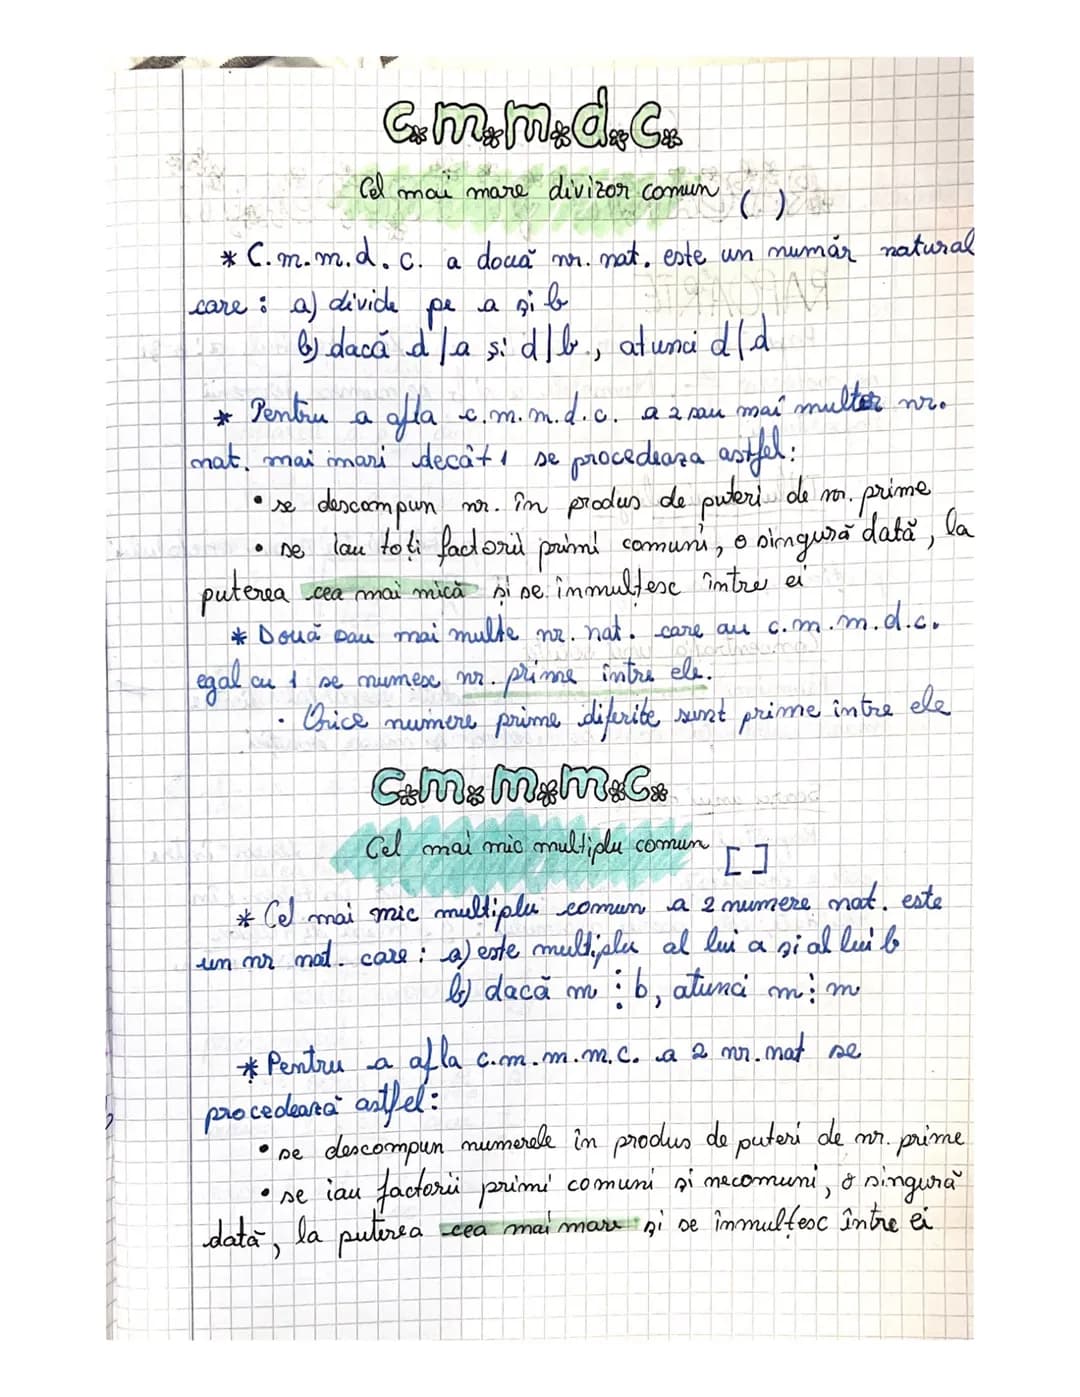 C.m.m.d.C.
Cel mai mare divizor comun ( )
* C.m.m.d.c. a două nr. nat. este un număr natural
care : a) divide pe a și b
b) dacă d'/a și d/b, atunci d/d
* Pentru a afla c.m.m.d.c. a 2 sau mai multor nr.
nat. mai mari decât 1 se procedeaza astfel:
• se descompun nr. în produs de puteri de nr. prime
• se iau toți factorii primi comuni, o singură dată, la
puterea cea mai mică și se înmulțesc între ei
* Două sau mai multe nr. nat. care au c.m.m.d.c.
egal cu 1 se numesc nr. prime între ele.
• Orice numere prime diferite sunt prime între ele
C.m.m.m.C.
Cel mai mic multiplu comun [ ]
* Cel mai mic multiplu comun a 2 numere nat. este
un nr nat. care : a) este multiplu al lui a și al lui b
b) dacă m ⋮ b, atunci m ⋮ m
* Pentru a afla c.m.m.m.c. a 2 nr. nat se
procedează astfel:
• se descompun numerele în produs de puteri de nr. prime
• se iau factorii primi comuni și necomuni, o singură
dată, la puterea cea mai mare și se înmulțesc între ei